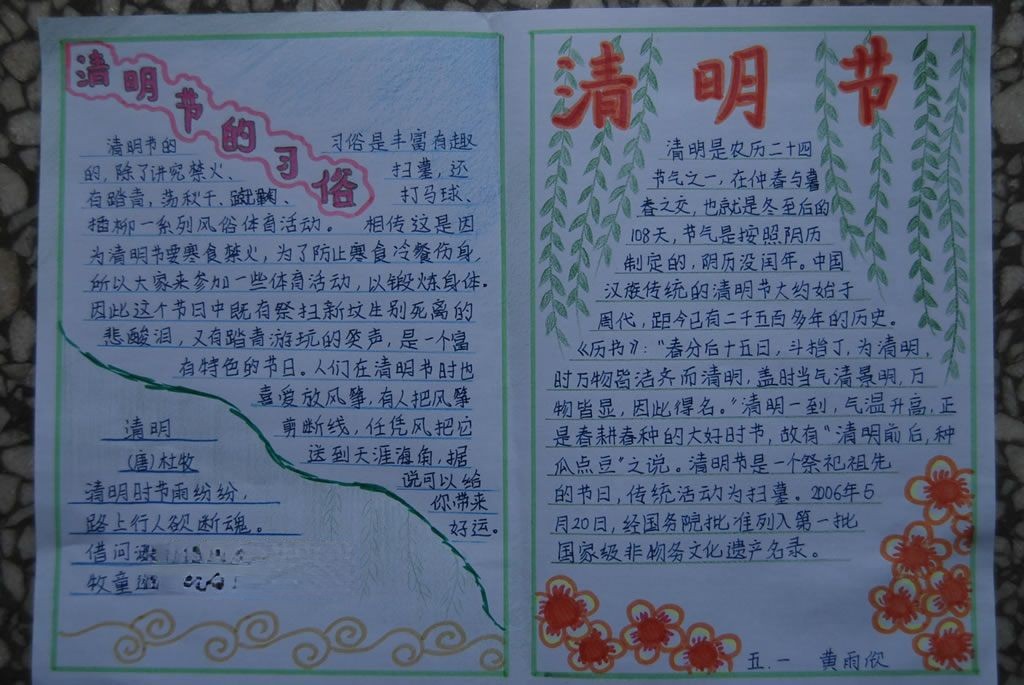 清明节的习俗
清明节的 习俗是丰富有趣
的,除了讲究禁火、 扫墓,还
有踏青,荡秋千、蹴鞠、 打马球、
插柳一系列风俗体育活动。 相传这是因
为清明节要寒食禁火,为了防止寒食冷餐伤身,
所以大家来参加一些体育活动,以锻炼身体.
因此这个节日中既有祭扫新坟生别死离的
悲酸泪,又有踏青游玩的笑声,是一个富
有特色的节日。人们在清明节时也
喜爱放风筝,有人把风筝
剪断线,任凭风把它
送到天涯海角,据
说可以给
你带来
好运。
清明
(唐)杜牧
清明时节雨纷纷,
路上行人欲断魂。
借问
牧童
清明节
清明是农历二十四
节气之一,在仲春与暮
春之交,也就是冬至后的
108天,节气是按照阴历
制定的,阴历没闰年。中国
汉族传统的清明节大约始于
周代,距今已有二千五百多年的历史。
《历书》:“春分后十五日,斗指丁,为清明,
时万物皆洁齐而清明,盖时当气清景明,万
物皆显,因此得名。”清明一到,气温升高,正
是春耕春种的大好时节,故有“清明前后,种
瓜点豆”之说。清明节是一个祭祀祖先
的节日,传统活动为扫墓。2006年5
月20日,经国务院批准列入第一批
国家级非物务文化遗产名录。
五.一 黄雨欣